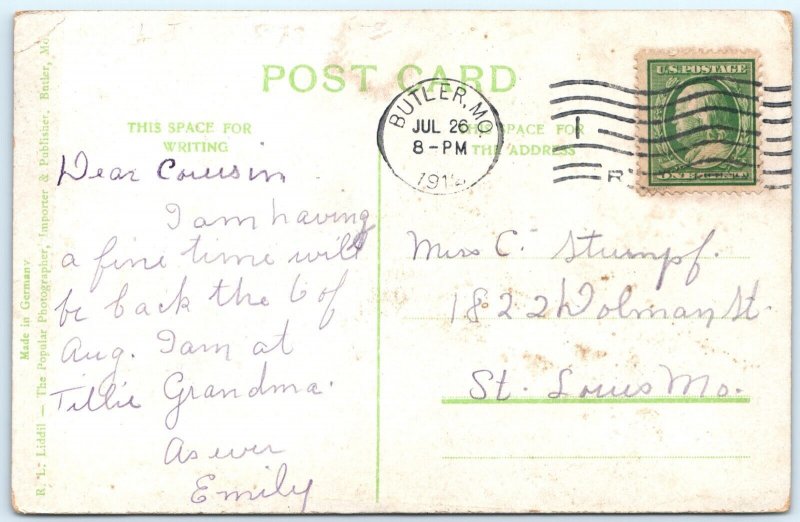 POST CARD
THIS SPACE FOR
WRITING
THIS SPACE FOR
THE ADDRESS
BUTLER, MO.
JUL 26
8-PM
U.S. POSTAGE
R
Dear Cousin
I am having
a fine time will
be back the 6 of
Aug. I am at
Tillie Grandma.
As ever
Emily
Miss C. Stumpf.
1822 Dolman St.
St. Louis Mo.
Made in Germany
R. L. Liddil — The Popular Photographer, Importer & Publisher, Butler, Mo.